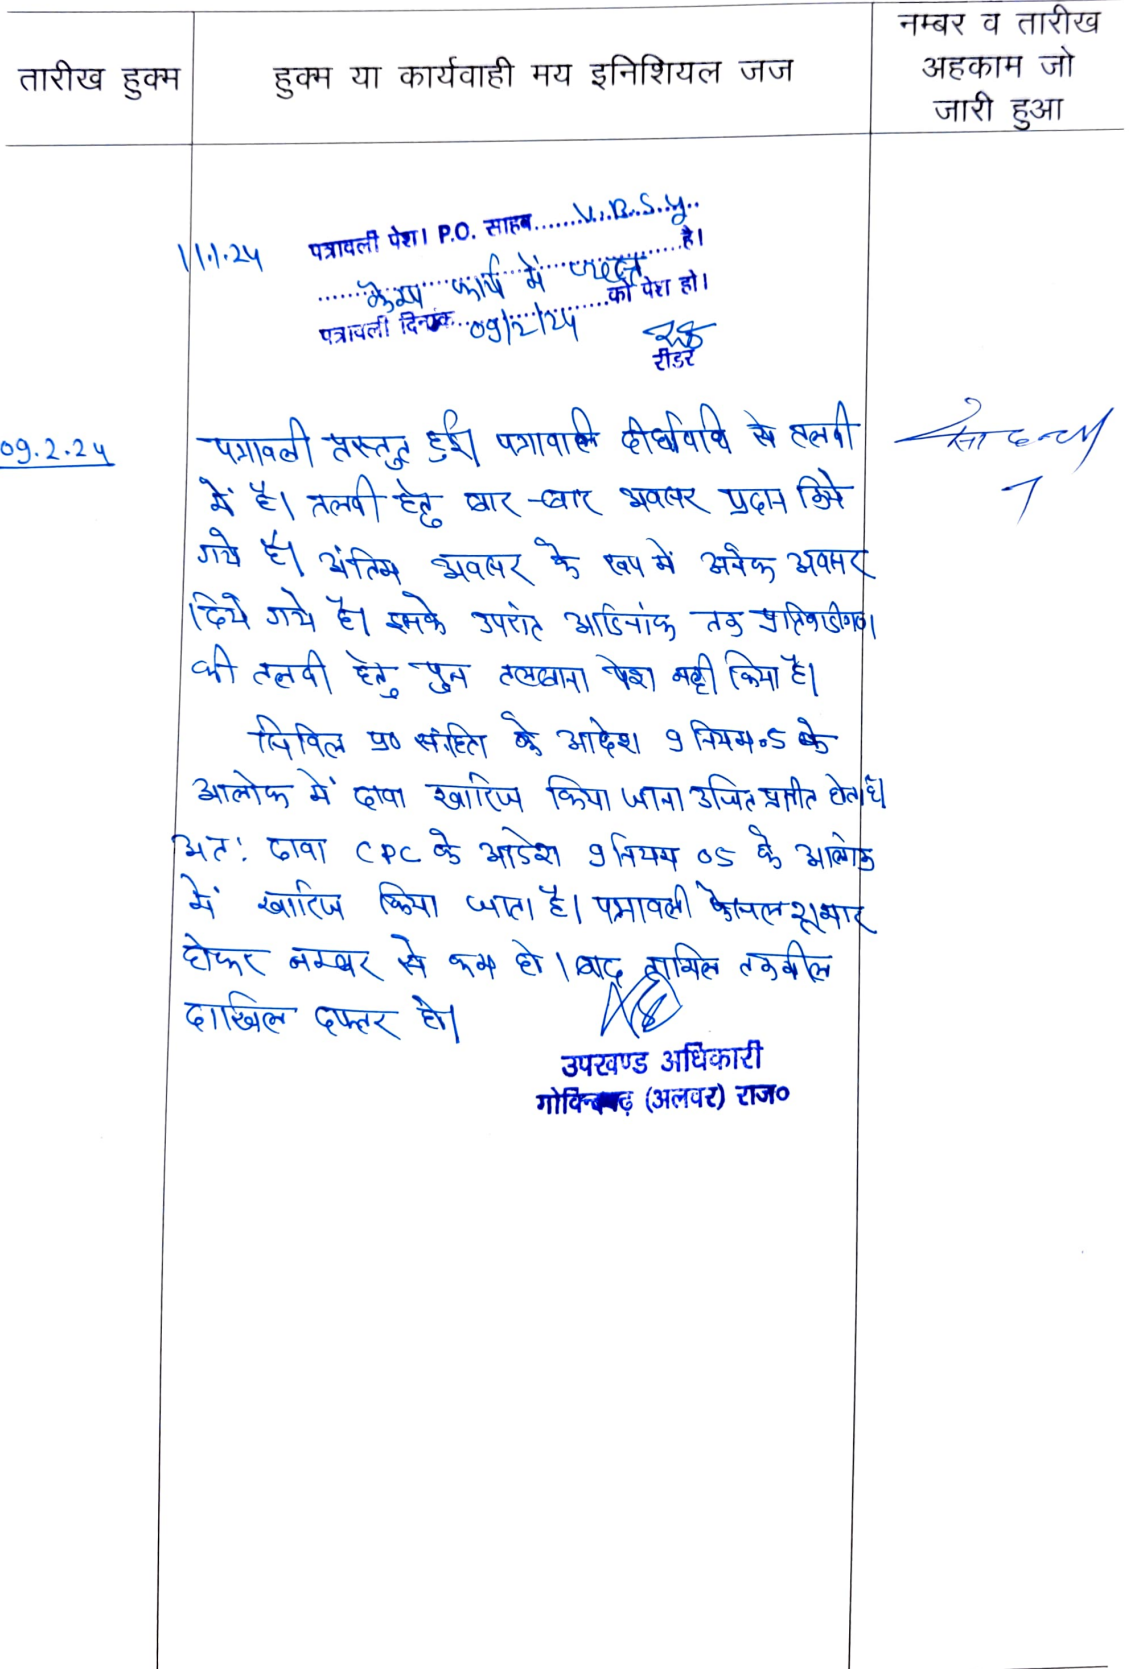 तारीख हुक्म
हुक्म या कार्यवाही मय इनिशियल जज
नम्बर व तारीख
अहकाम जो
जारी हुआ
11.1.24
पत्रावली पेश। P.O. साहब.......V.B.S.y..
कैम्प कार्य में व्यस्त है।
पत्रावली दिनांक..09/2/24 को पेश हो।
रीडर
09.2.24
पत्रावली प्रस्तुत हुई। पत्रावलि दीर्घावधि से तलवी
में है। तलवी हेतु बार-बार अवसर प्रदान किये
गये है। अंतिम अवसर के रूप में अनेक अवसर
दिये गये है। इसके उपरांत आदिनांक तक प्रतिवादीगण
की तलवी हेतु पुन तलबाना पेश नही किया है।
सिविल प्र० संहिता के आदेश 9 नियम.5 के
आलोक में दावा खारिज किया जाना उचित प्रतीत होता है।
अत: दावा CPC के आदेश 9 नियम 05 के आलोक
में खारिज किया जाता है। पत्रावली फैसल शुमार
होकर नम्बर से कम हो। बाद तामिल तकमील
दाखिल दफ्तर हो।
उपखण्ड अधिकारी
गोविन्दगढ़ (अलवर) राज०